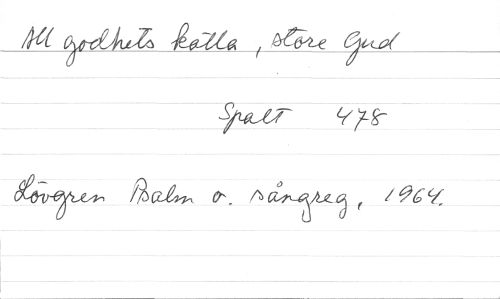 All godhets källa, store Gud
Spalt 478
Lövgren Psalm o. sångreg, 1964.